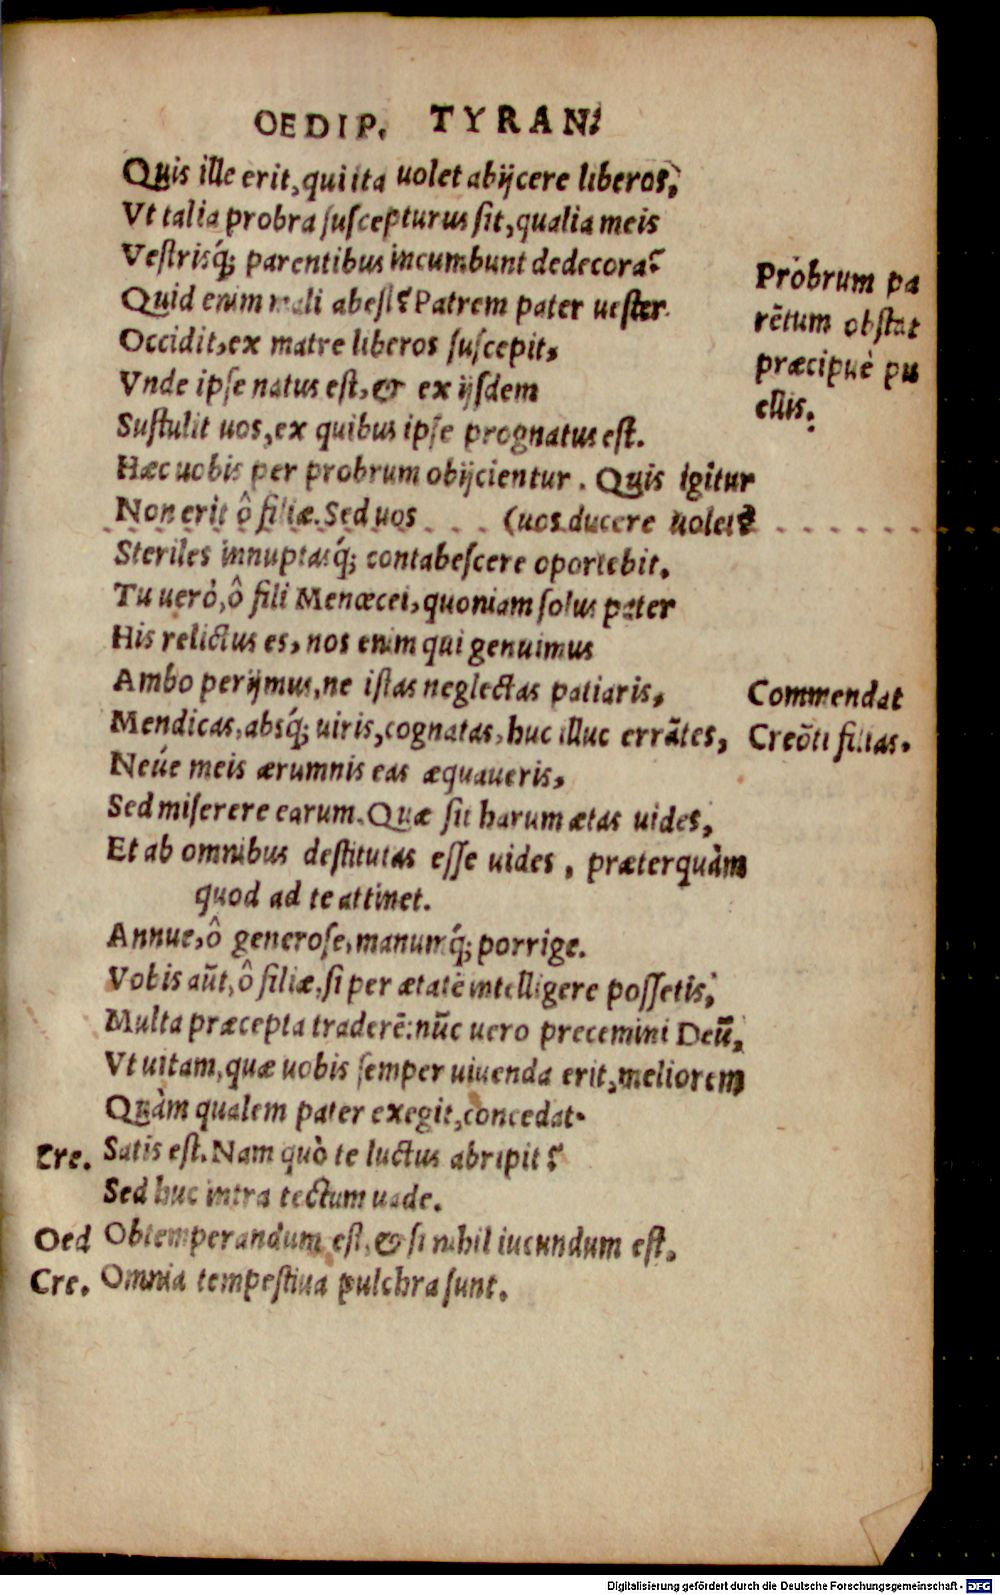 OEDIP. TYRANI
Quis ille erit, qui ita uolet abijcere liberos,
Vt talia probra suscepturus sit, qualia meis
Vestrisq́; parentibus incumbunt dedecora?
Quid enim mali abest? Patrem pater uester
Occidit, ex matre liberos suscepit,
Vnde ipse natus est, & ex ijsdem
Sustulit uos, ex quibus ipse prognatus est.
Hæc uobis per probrum obijcientur. Quis igitur
Non erit ô filiæ. Sed uos (uos ducere uolet?
Steriles innuptasq́; contabescere oportebit.
Tu uerò, ô fili Menœcei, quoniam solus pater
His relictus es, nos enim qui genuimus
Ambo perijmus, ne istas neglectas patiaris,
Mendicas, absq́; uiris, cognatas, huc illuc errãtes,
Neúe meis ærumnis eas æquaueris,
Sed miserere earum. Quæ sit harum ætas uides,
Et ab omnibus destitutas esse uides, præterquàm
quod ad te attinet.
Annue, ô generose, manumq́; porrige.
Vobis aũt, ô filiæ, si per ætatẽ intelligere possetis,
Multa præcepta traderẽ: nũc uero precemini Deũ,
Vt uitam, quæ uobis semper uiuenda erit, meliorem
Quàm qualem pater exegit, concedat.
Cre. Satis est. Nam quò te luctus abripit?
Sed huc intra tectum uade.
Oed Obtemperandum est, & si nihil iucundum est.
Cre. Omnia tempestiua pulchra sunt.
Probrum pa
rẽtum obstat
præcipuè pu
ellis.
Commendat
Creõti filias.
Digitalisierung gefördert durch die Deutsche Forschungsgemeinschaft - DFG